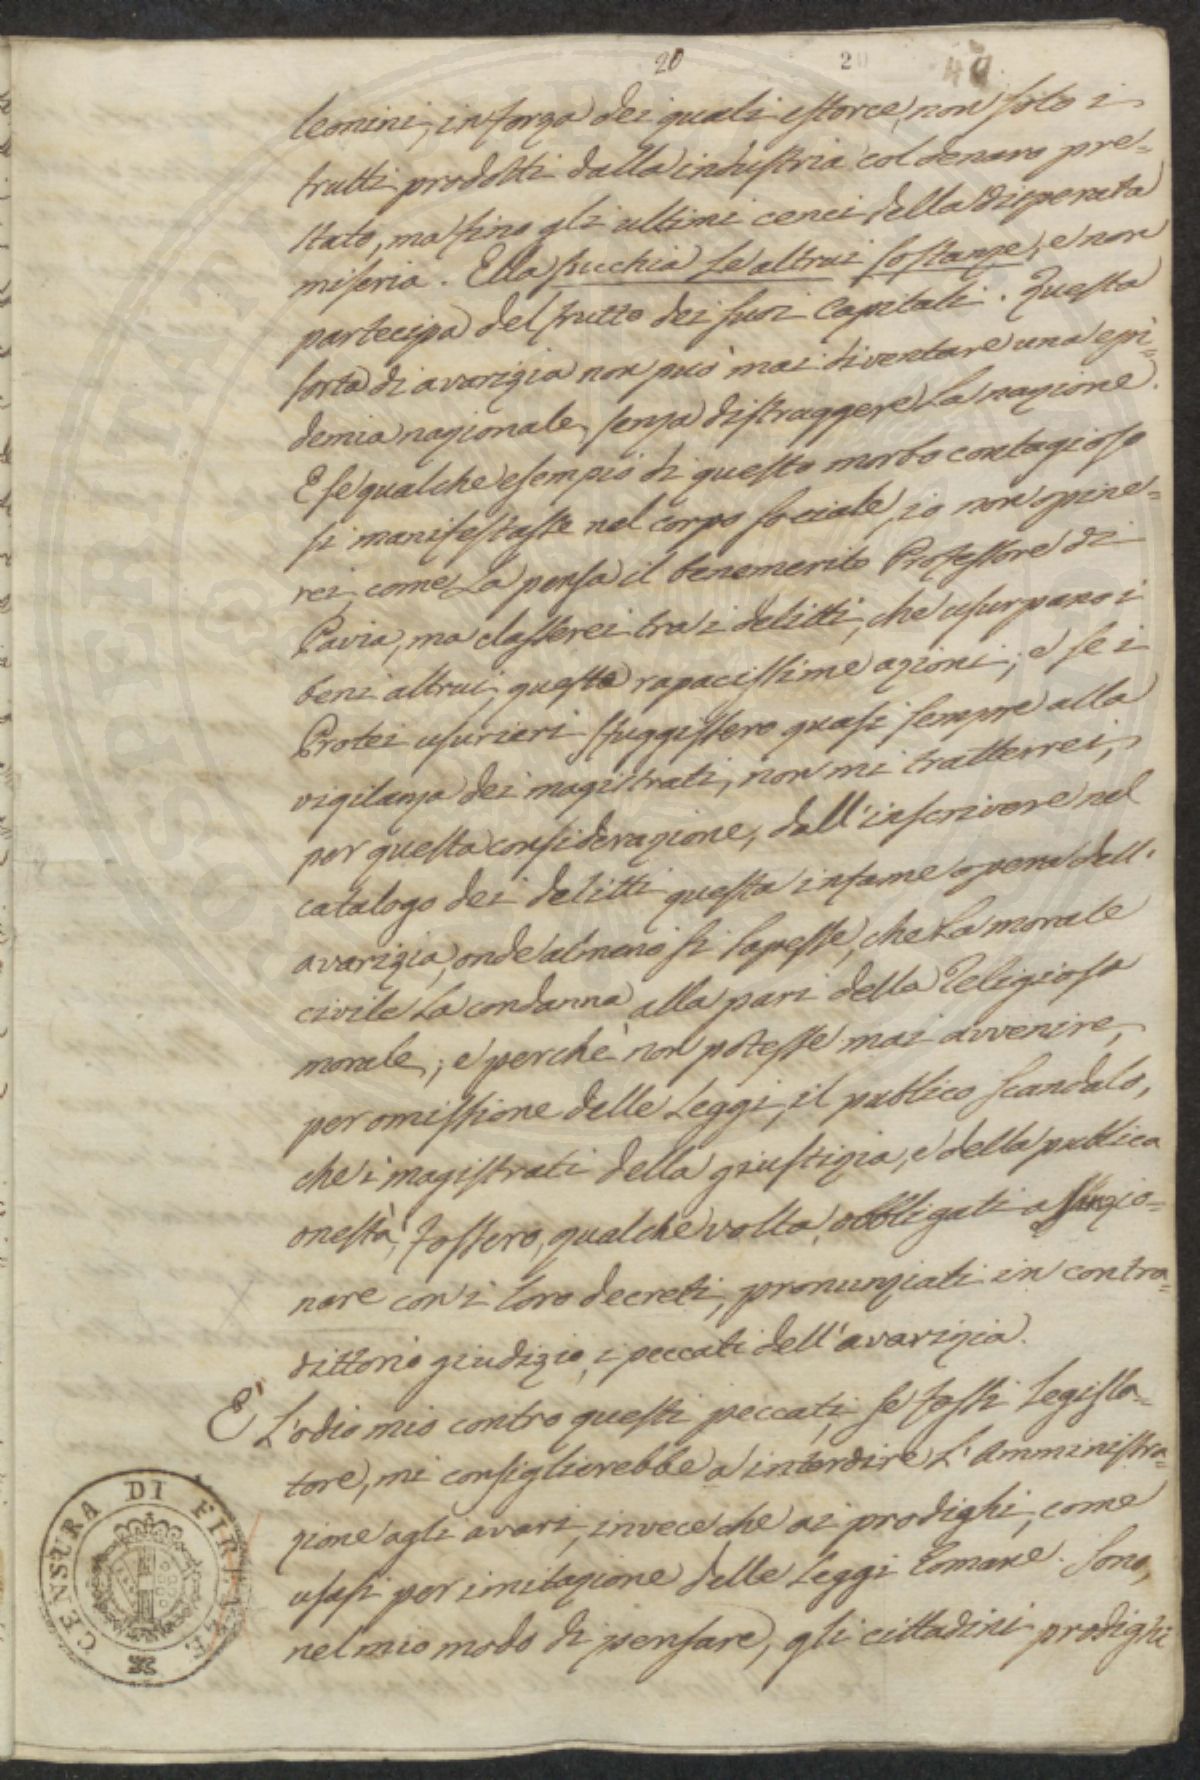 20 20 40
leonini, in forza dei quali estorce, non solo i
frutti prodotti dalla industria col denaro pre=
stato, ma fino gli ultimi cenci della disperata
miseria. Ella succhia le altrui sostanze, e non
partecipa del frutto dei suoi capitali. Questa
sorta di avarizia non può mai diventare una epi=
demia nazionale, senza distruggere la nazione.
E se qualche esempio di questo morbo contagioso
si manifestasse nel corpo sociale, io non opine=
rei come la pensa il benemerito Professore di
Pavia, ma classerei tra i delitti, che usurpano i
beni altrui, queste rapacissime azioni; e se i
Protei usurieri sfuggissero quasi sempre alla
vigilanza dei magistrati, non mi tratterrei,
per questa considerazione, dall'inscrivere nel
catalogo dei delitti questa infame opera dell'
avarizia, onde almeno si sapesse, che la morale
civile la condanna alla pari della Religiosa
morale; e perchè non potesse mai avvenire,
per omissione delle Leggi, il publico scandalo,
che i magistrati della giustizia, e della publica
onestà, fossero, qualche volta, obbligati a sanzio=
nare con i loro decreti, pronunziati in contra=
dittorio giudizio, i peccati dell'avarizia.
E L'odio mio contro questi peccati, se fossi Legisla=
tore, mi consiglierebbe a interdire l'Amministra=
zione agli avari, invece che ai prodighi, come
usasi per imitazione delle Leggi Romane. Sono,
nel mio modo di pensare, gli cittadini prodighi
CENSURA DI FIRENZE